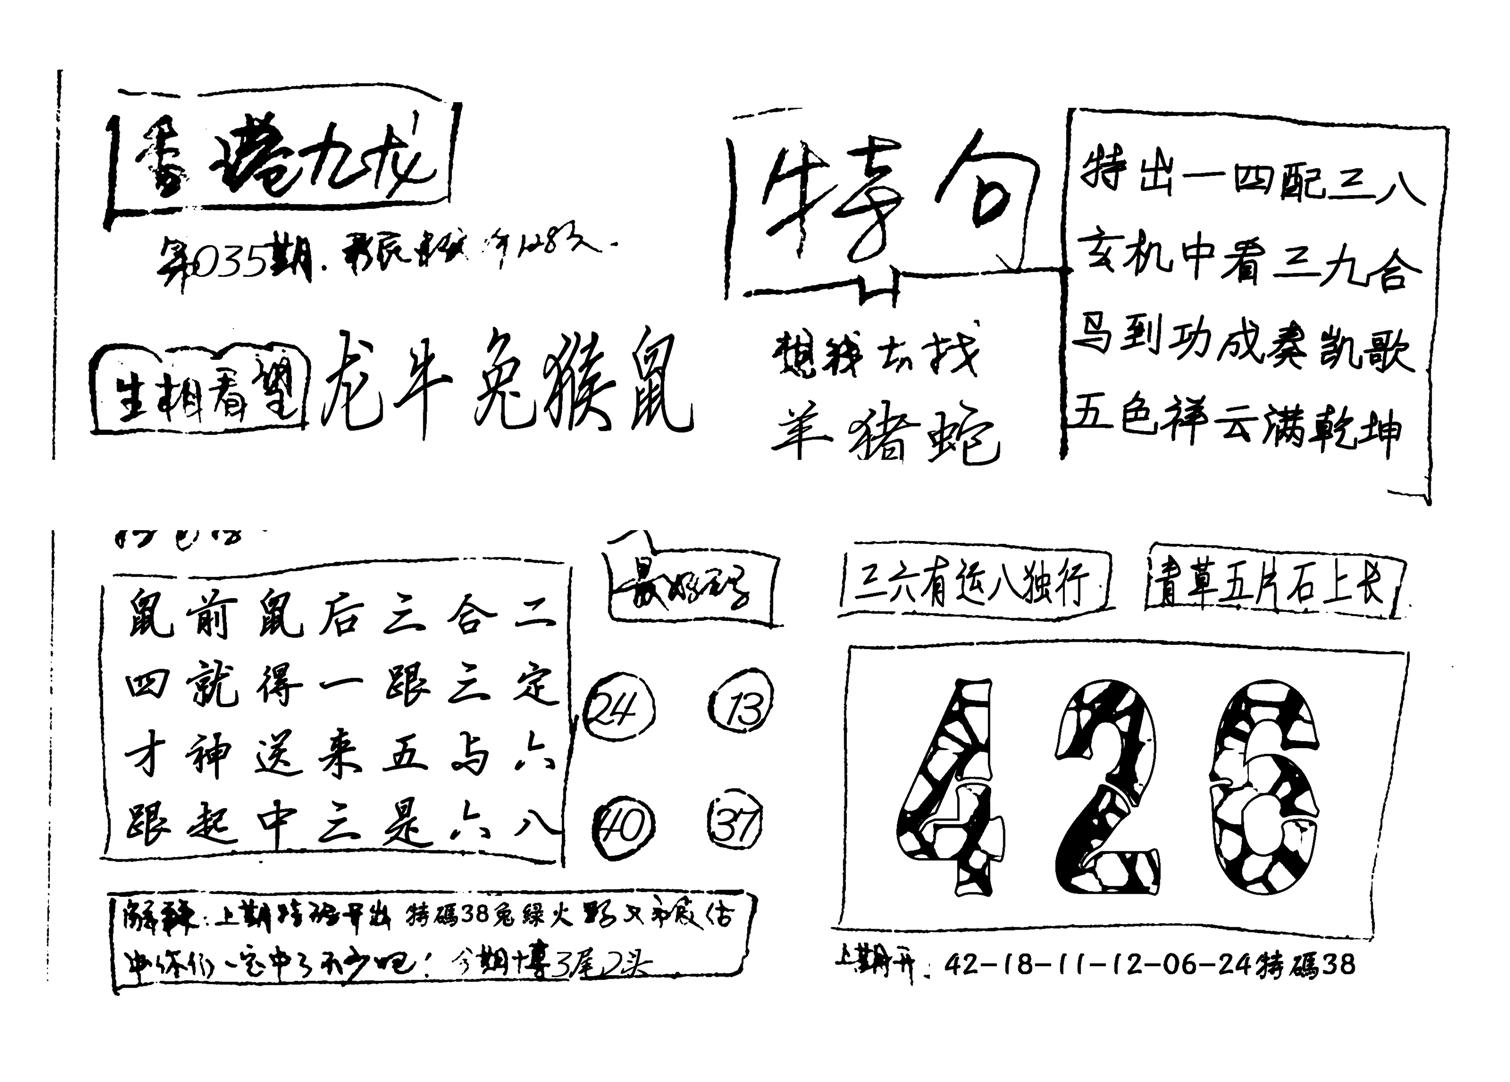 香港九龙
第035期.
生相看望 龙牛兔猴鼠
特句
想我去找
羊猪蛇
特出一四配三八
玄机中看三九合
马到功成奏凯歌
五色祥云满乾坤
鼠前鼠后三合二
四就得一跟三定
才神送来五与六
跟起中三是六八
最好码
24 13
40 37
解释:上期特码开出 特碼38兔綠火
你们一定中了不少吧! 今期博3尾2头
三六有运八独行
青草五片石上长
426
上期开: 42-18-11-12-06-24特碼38